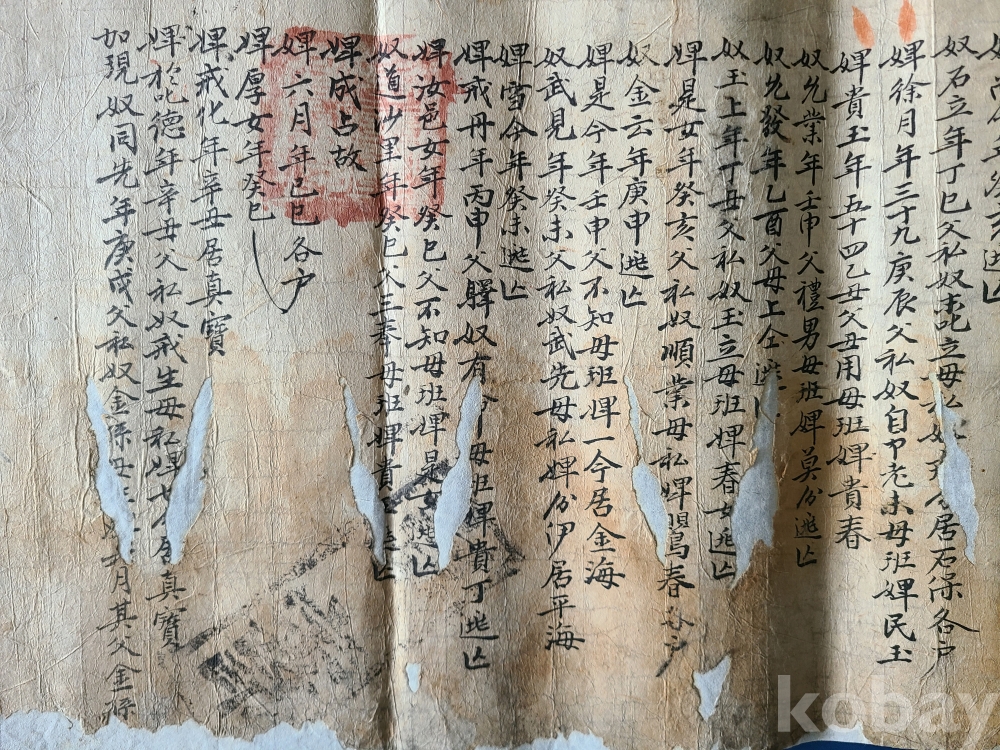 奴石立年丁巳父私奴未叱立母私婢 居石保各户
婢徐月年三十九庚辰父私奴自卩老未母班婢民玉
婢貴玉年五十四乙丑父丑用母班婢貴春
奴允業年壬申父禮男母班婢莫分逃亡
奴允發年乙酉父母上仝逃亡
奴玉上年丁丑父私奴玉立母班婢春女逃亡
婢是女年癸亥父私奴順業母私婢鶯春各户
奴金云年庚申逃亡
婢是今年壬申父不知母班婢一今居金海
奴武見年癸未父私奴武先母私婢分伊居平海
婢雪今年癸未逃亡
婢戒丹年丙申父驛奴有 母班婢貴丁逃亡
婢汝邑女年癸巳父不知母班婢是女逃亡
奴道沙里年癸巳父三奉母班婢貴 亡
婢成占故
婢六月年己巳各户
婢厚女年癸巳
婢戒化年辛丑居真寶
婢於叱德年辛丑父私奴戒生母私婢七 居真寶
加現奴同先年庚戌父私奴金 母 月其父金孫
kobay